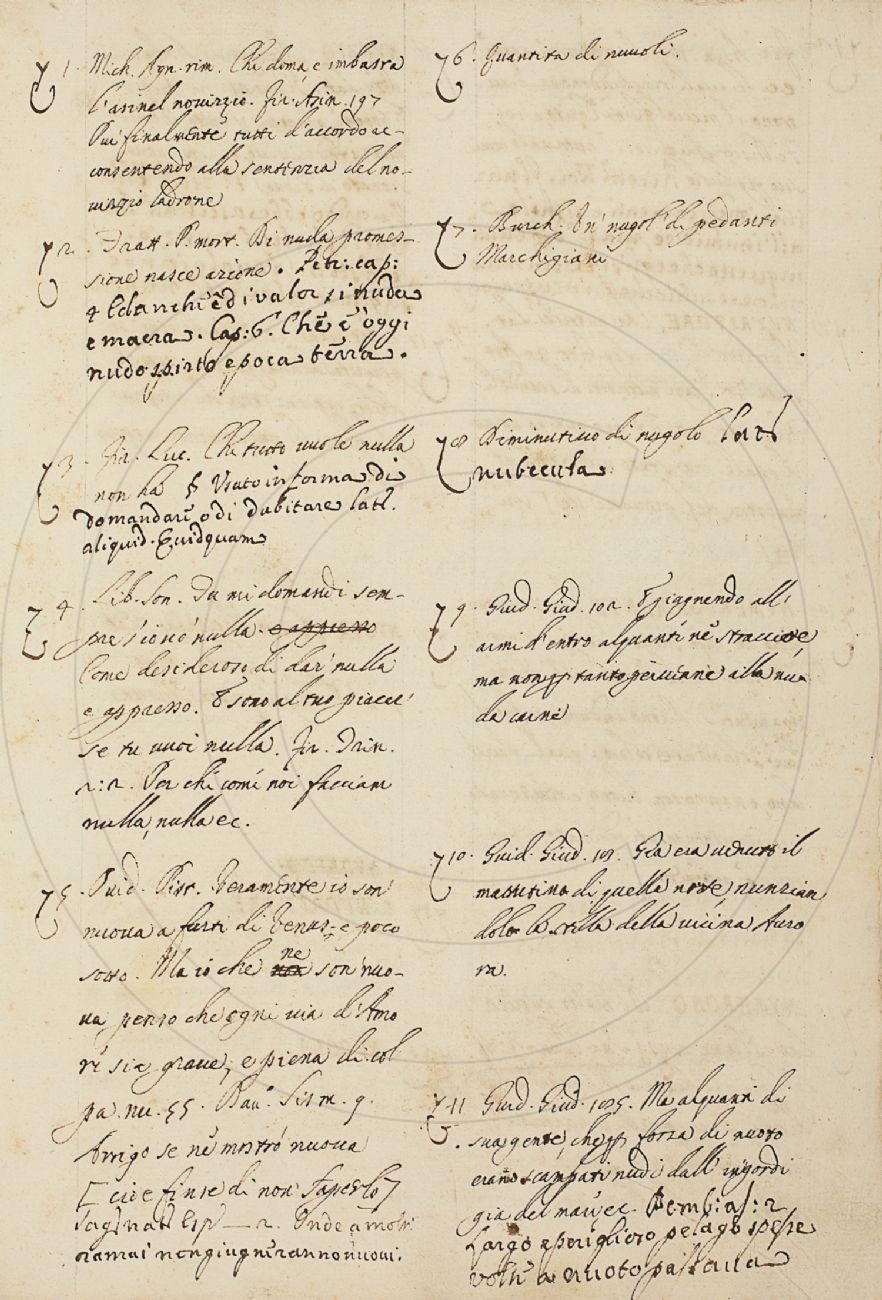 1. Mich. Agn. rim. Chi doma, e imbasta
l'asinel novizio. Fir. Asin. 197
Poi finalmente tutti d'accordo ac-
consentendo alla sentenzia del no-
vizio ladrone
2. Tratt. P. mort. Di nuda promes-
sione nasce azione. Petr: cap:
4 Ed anch'è di valor sì nuda
e macra. Cap: 6. Che è oggi
nudo spirto e poca terra.
3. Fr. Luc. Chi tutto vuole nulla
non ha § Usato in forma di
domandare o di dubitare lat.
aliquid. Quidquam
4. Lib. Son. Tu mi domandi sem-
pre s'io vo' nulla.
Come desideroso di dar nulla
e appresso. E sono al tuo piacer
se tu vuoi nulla. Fir. Trin.
2:2. Per chi come noi facciam
nulla, nulla ec.
5. Ovid. Pist. Veramente io son
nuova a furti di Venus; e poco
sotto. Ma io che ne son nuo-
va penso che ogni via d'Amo
re sia grave, e piena di col
pa. nu. 55. Dav. Scism. 9.
Arrigo se ne mostrò nuova
[cioè finse di non saperlo]
Onde a molti
oramai non giugneranno nuovi.
6. Quantità di nuvoli.
7. Burch. Un nugol di pedanti
Marchigiani
8 Diminutivo di nugolo lat.
nubecula.
9. Guid. Giud. 102. E giagnendo all'
armi d'entro alquanti ne stracciore
ma non per tanto pervenne alla nu
da carne
10. Guid. Giud. 109. Già era venuto il
mattutino di quella notte, nunzian
dolo la stella della vicina Auro
ra.
11 Guid. Giud. Ma alquanti di
sua gente, che per forza di nuoto
erano scampati nudi dall'ingordi
gia del mare ec. Bemb: as: 2
Largo e periglioso pelago spesse
volte a nuoto passava